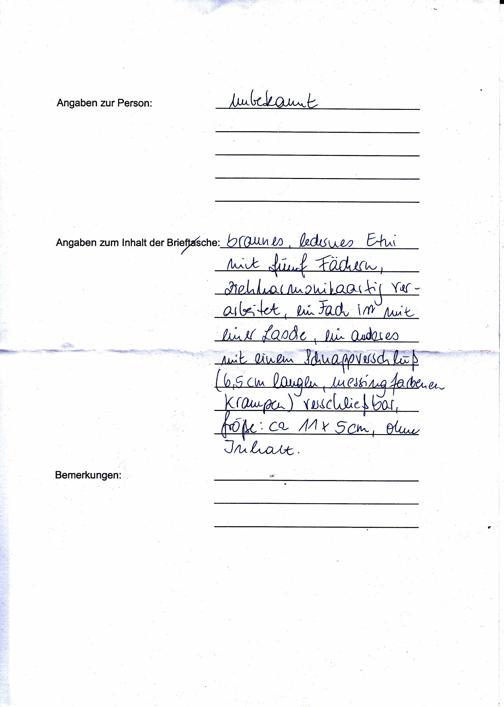 Angaben zur Person: Unbekannt
Angaben zum Inhalt der Brieftasche: braunes, ledernes Etui
mit fünf Fächern,
ziehharmonikaartig ver-
arbeitet, ein Fach ist mit
einer Lasche, ein anderes
mit einem Schnappverschluß
(6,5cm langen, messingfarbenen
Krampen) verschließbar,
Größe: ca 11 x 5cm, ohne
Inhalt.
Bemerkungen: